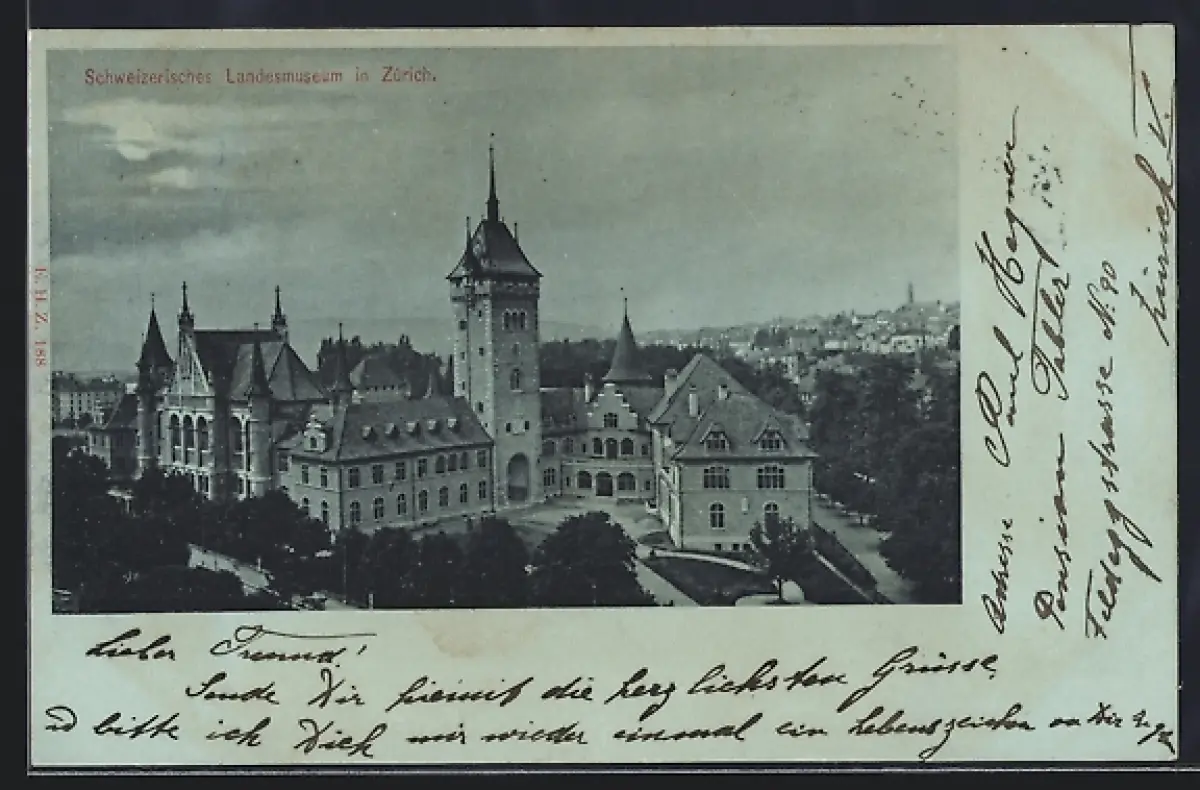 Schweizerisches Landesmuseum in Zürich.
E. H. Z. 188
Lieber Freund!
Sende Dir hiemit die herzlichsten Grüsse
bitte ich Dich mir wieder einmal ein Lebenszeichen von Dir
Adresse Paul Hagner
Pension Tobler
Feldeggstrasse N. 90
Zürich V.